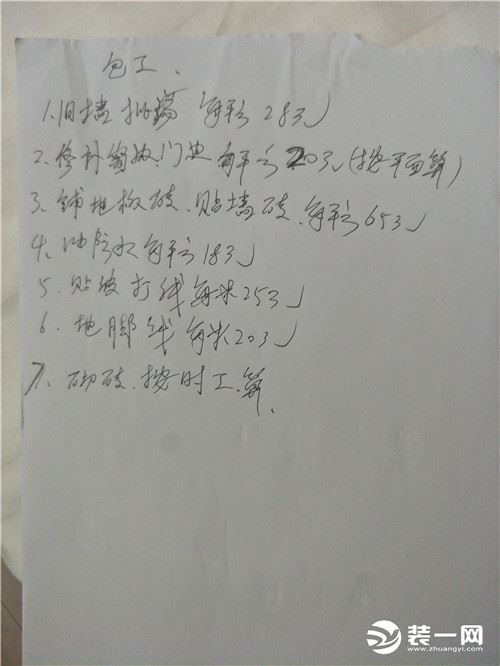 包工、
1、旧墙批荡每平方28元
2、修补窗边、门边每平方20元(按平面算)
3、铺地板砖、贴墙砖、每平方65元
4、油防水每平方18元
5、贴波打线每米25元
6、地脚线每米20元
7、砌砖、按时工算、
装一网
www.zhuangyi.com